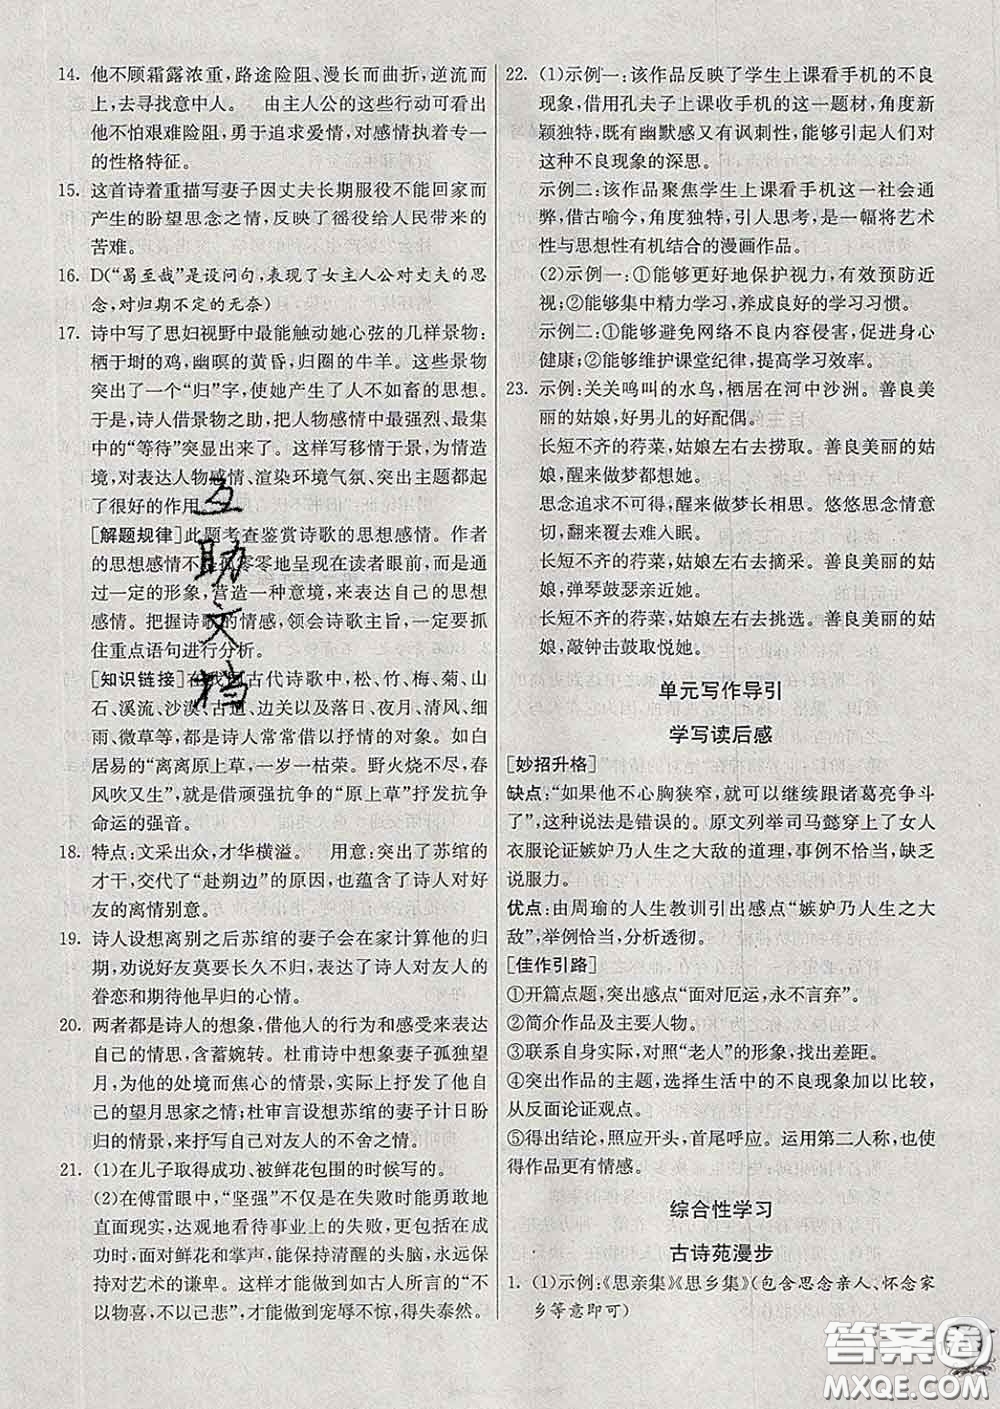 14. 他不顾霜露浓重,路途险阻、漫长而曲折,逆流而上,去寻找意中人。　由主人公的这些行动可看出他不怕艰难险阻,勇于追求爱情,对感情执着专一的性格特征。
15. 这首诗着重描写妻子因丈夫长期服役不能回家而产生的盼望思念之情,反映了徭役给人民带来的苦难。
16. D(“曷至哉”是设问句,表现了女主人公对丈夫的思念,对归期不定的无奈)
17. 诗中写了思妇视野中最能触动她心弦的几样景物:
栖于埘的鸡,幽暝的黄昏,归圈的牛羊。这些景物
突出了一个“归”字,使她产生了人不如畜的思想。
于是,诗人借景物之助,把人物感情中最强烈、最集
中的“等待”突显出来了。这样写移情于景,为情造
境,对表达人物感情、渲染环境气氛、突出主题都起
了很好的作用。
[解题规律]此题考查鉴赏诗歌的思想感情。作者
的思想感情不是孤零零地呈现在读者眼前,而是通
过一定的形象,营造一种意境,来表达自己的思想
感情。把握诗歌的情感,领会诗歌主旨,一定要抓
住重点语句进行分析。
[知识链接]在我国古代诗歌中,松、竹、梅、菊、山
石、溪流、沙漠、古道、边关以及落日、夜月、清风、细
雨、微草等,都是诗人常常借以抒情的对象。如白
居易的“离离原上草,一岁一枯荣。野火烧不尽,春
风吹又生”,就是借顽强抗争的“原上草”抒发抗争
命运的强音。
18. 特点:文采出众,才华横溢。　用意:突出了苏绾的
才干,交代了“赴朔边”的原因,也蕴含了诗人对好
友的离情别意。
19. 诗人设想离别之后苏绾的妻子会在家计算他的归
期,劝说好友莫要长久不归,表达了诗人对友人的
眷恋和期待他早归的心情。
20. 两者都是诗人的想象,借他人的行为和感受来表达
自己的情思,含蓄婉转。杜甫诗中想象妻子孤独望
月,为他的处境而焦心的情景,实际上抒发了他自
己的望月思家之情;杜审言设想苏绾的妻子计日盼
归的情景,来抒写自己对友人的不舍之情。
21. (1)在儿子取得成功、被鲜花包围的时候写的。
(2)在傅雷眼中,“坚强”不仅是在失败时能勇敢地
直面现实,达观地看待事业上的失败,更包括在成
功时,面对鲜花和掌声,能保持清醒的头脑,永远保
持对艺术的谦卑。这样才能做到如古人所言的“不
以物喜,不以己悲”,才能做到宠辱不惊,得失泰然。
22. (1)示例一:该作品反映了学生上课看手机的不良
现象,借用孔夫子上课收手机的这一题材,角度新
颖独特,既有幽默感又有讽刺性,能够引起人们对
这种不良现象的深思。
示例二:该作品聚焦学生上课看手机这一社会通
弊,借古喻今,角度独特,引人思考,是一幅将艺术
性与思想性有机结合的漫画作品。
(2)示例一:①能够更好地保护视力,有效预防近
视;②能够集中精力学习,养成良好的学习习惯。
示例二:①能够避免网络不良内容侵害,促进身心
健康;②能够维护课堂纪律,提高学习效率。
23. 示例:关关鸣叫的水鸟,栖居在河中沙洲。善良美
丽的姑娘,好男儿的好配偶。
长短不齐的荇菜,姑娘左右去捞取。善良美丽的姑
娘,醒来做梦都想她。
思念追求不可得,醒来做梦长相思。悠悠思念情意
切,翻来覆去难入眠。
长短不齐的荇菜,姑娘左右去摘采。善良美丽的姑
娘,弹琴鼓瑟亲近她。
长短不齐的荇菜,姑娘左右去挑选。善良美丽的姑
娘,敲钟击鼓取悦她。
单元写作导引
学写读后感
[妙招升格]
缺点:“如果他不心胸狭窄,就可以继续跟诸葛亮争斗
了”,这种说法是错误的。原文列举司马懿穿上了女人
衣服论证嫉妒乃人生之大敌的道理,事例不恰当,缺乏
说服力。
优点:由周瑜的人生教训引出感点“嫉妒乃人生之大
敌”,举例恰当,分析透彻。
[佳作引路]
①开篇点题,突出感点“面对厄运,永不言弃”。
②简介作品及主要人物。
③联系自身实际,对照“老人”的形象,找出差距。
④突出作品的主题,选择生活中的不良现象加以比较,
从反面论证观点。
⑤得出结论,照应开头,首尾呼应。运用第二人称,也
使得作品更有情感。
综合性学习
古诗苑漫步
1. (1)示例:《思亲集》《思乡集》(包含思念亲人、怀念家
乡等意即可)
互助文档
答案圈
MXQE.COM